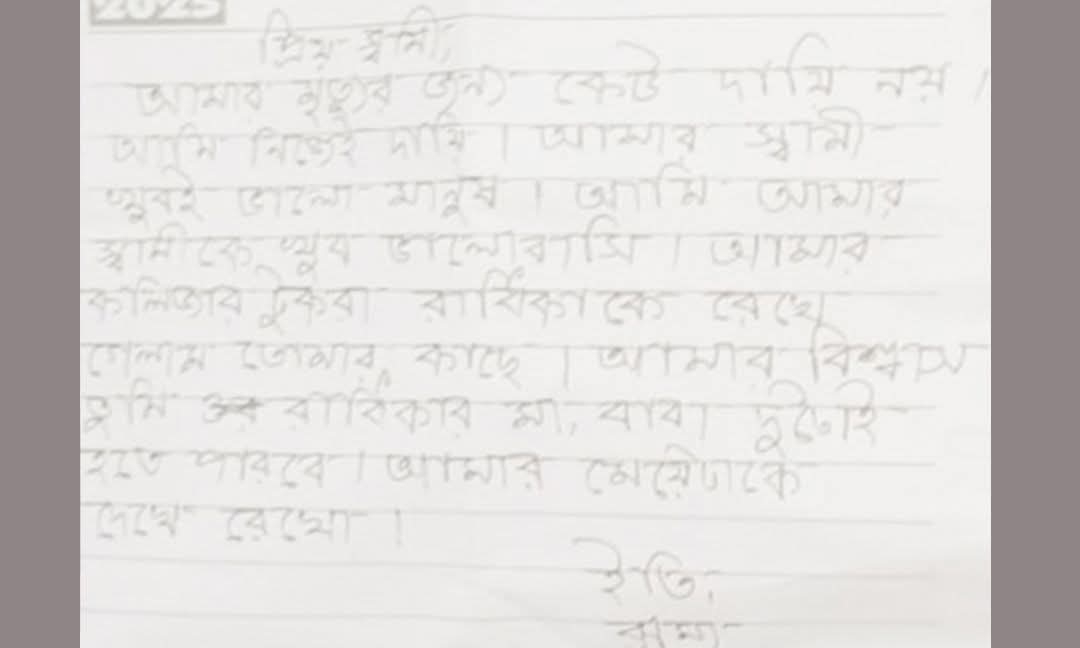 2025
প্রিয় স্বামী,
আমার মৃত্যুর জন্য কেউ দায়ি নয়।
আমি নিজেই দায়ি। আমার স্বামী
খুবই ভালো মানুষ। আমি আমার
স্বামীকে খুব ভালোবাসি। আমার
কলিজার টুকরা রাধিকাকে রেখে
গেলাম তোমার কাছে। আমার বিশ্বাস
তুমি রাধিকার মা, বাবা দুটোই
হতে পারবে। আমার মেয়েটাকে
দেখে রেখো।
ইতি,